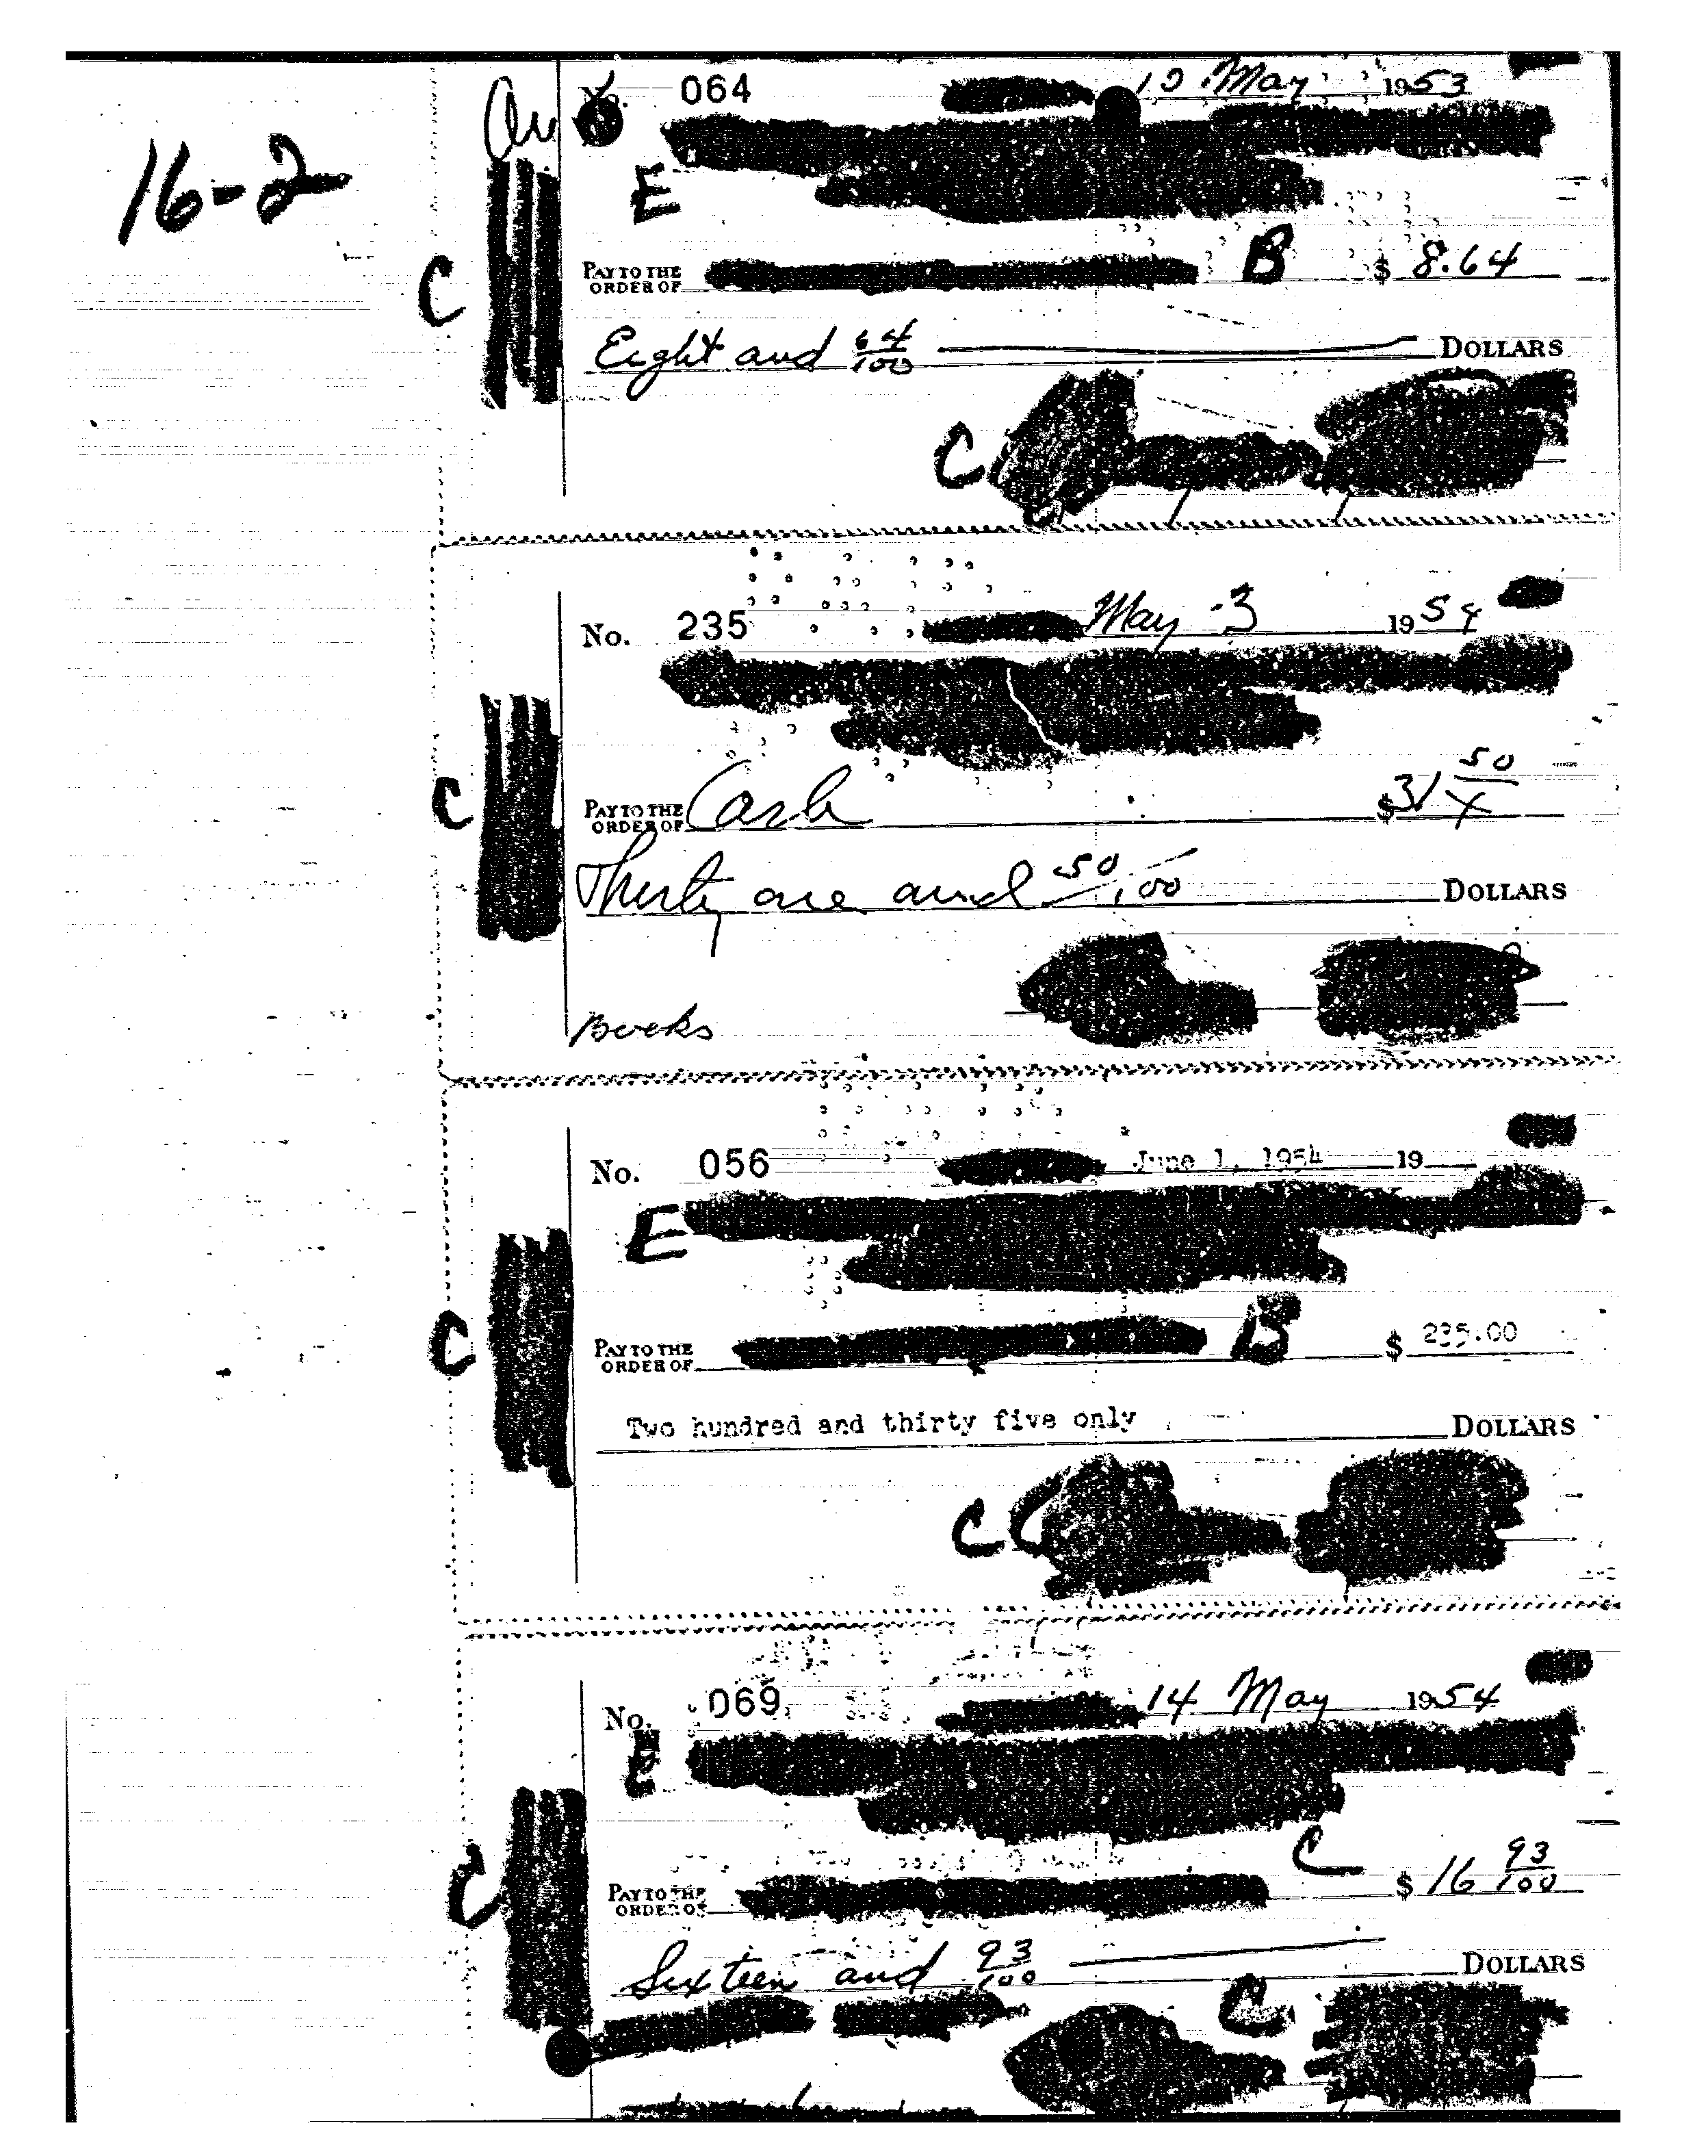 16-2
No. 064 May 1953
E
C
PAY TO THE ORDER OF B $ 8.64
Eight and 64/100 DOLLARS
C
No. 235 May 3 1954
C
PAY TO THE ORDER OF Cash $31 50/X
Thirty one and 50/100 DOLLARS
Books
No. 056 June 1, 1954 19
E
C
PAY TO THE ORDER OF B $ 235.00
Two hundred and thirty five only DOLLARS
C
No. 069 14 May 1954
E
C
C
PAY TO THE ORDER OF $ 16 93/100
Sixteen and 93/100 DOLLARS
C